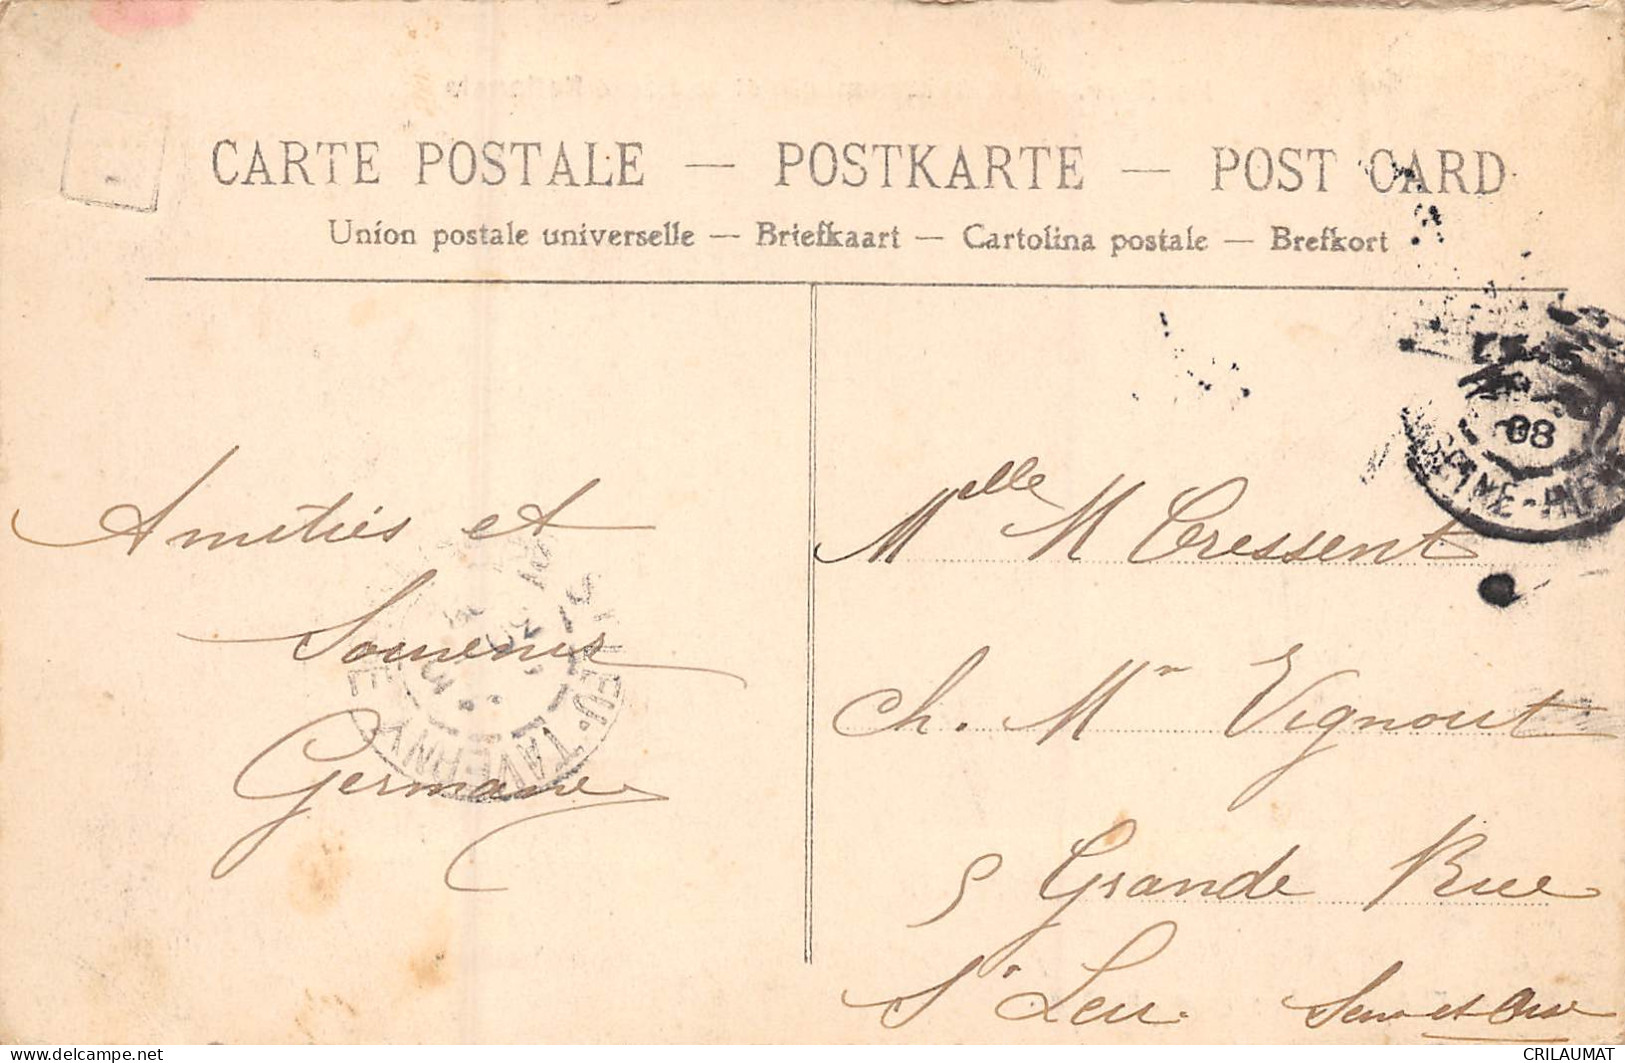 CARTE POSTALE — POSTKARTE — POST CARD
Union postale universelle — Briefkaart — Cartolina postale — Brefkort
Amitiés et
Souvenirs
Germaine
Melle M Cressent
Ch. Mr Vignout
5 Grande Rue
St Leu. Seine et Oise
08
SEINE-INF
LEU. TAVERNY
https://www.delcampe.net
CRILAUMAT